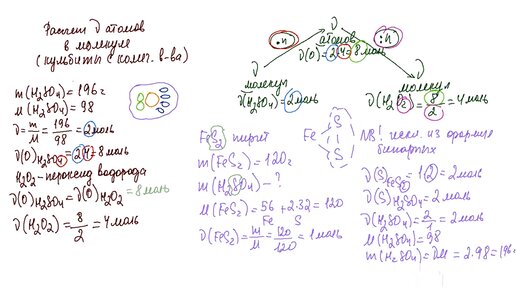 Расчет ν атомов
в молекуле
(кульбиты с комп. в-ва)
m(H₂SO₄) = 196 г
M(H₂SO₄) = 98
ν = m/M = 196/98 = 2 моль
ν(O)H₂SO₄ = 2·4 = 8 моль
H₂O₂ – пероксид водорода
ν(O)H₂SO₄ = ν(O)H₂O₂ = 8 моль
ν(H₂O₂) = 8/2 = 4 моль
ν
атомов
•n
:n
ν(O) = 2·4 = 8 моль
ν
молекул
ν(H₂SO₄) = 2 моль
ν
молекул
ν(H₂O₂) = 8/2 = 4 моль
FeS₂ пирит
Fe S S
m(FeS₂) = 120 г
m(H₂SO₄) – ?
M(FeS₂) = 56 + 2·32 = 120
Fe S
ν(FeS₂) = m/M = 120/120 = 1 моль
NB! искл. из
бинарных
ν(S)FeS₂ = 1·2 = 2 моль
ν(S)H₂SO₄ = 2 моль
ν(H₂SO₄) = 2/1 = 2 моль
M(H₂SO₄) = 98
m(H₂SO₄) = νM = 2·98 = 196